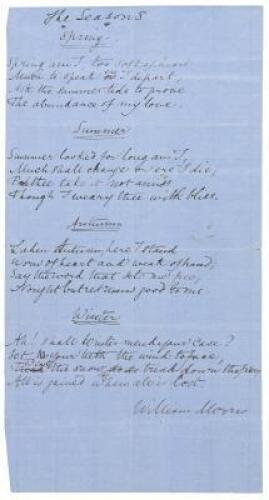 The Seasons
Spring.
Spring am I, too soft of heart
Much to speak ere I depart,
Ask the summer tide to prove
The abundance of my love.
Summer
Summer looked for long am I,
Much shall change ere I die;
Prithee take it not amiss
Though I weary thee with bliss.
Autumn
Laden Autumn, here I stand
Worn of heart and weak of hand;
Say the word that sets me free,
Nought but rest seems good to me.
Winter
Ah! shall Winter mend your case?
Set your teeth the wind to face.
the snow down
All is gained when all is lost.
William Morris